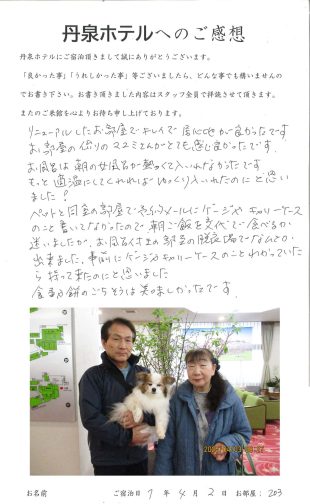 丹泉ホテルへのご感想
丹泉ホテルにご宿泊頂きまして誠にありがとうございます。
「良かった事」「うれしかった事」等ございましたら、どんな事でも構いませんの
でお書き下さい。お書き頂きました内容はスタッフ全員で拝読させて頂きます。
またのご来館を心よりお待ち申し上げております。
リニューアルしたお部屋でキレイで居心地が良かったです
お部屋の係りのスズミさんがとても感じ良かったです。
お風呂は朝の女風呂が熱くって入いれなかったです
もっと適温にしてくれればゆっくり入いれたのにと思い
ました!
ペットと同室の部屋で予約メールにゲージやキャリーケース
のこと書いてなかったので朝ご飯を交代で食べるか
迷いましたが、お風呂くさ
出来ました、事前にゲージかキャリーケースのことわかっていた
ら持って来たのにと思いました
のごちそうは美味しかったです
お名前 ご宿泊日 7 年 4 月 2 日 お部屋: 203